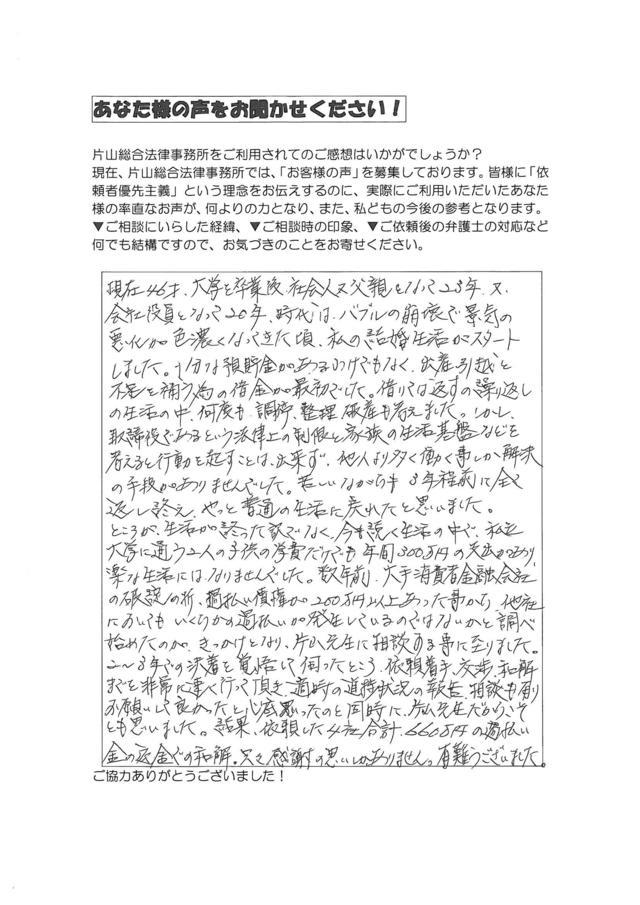 あなた様の声をお聞かせください！
片山総合法律事務所をご利用されてのご感想はいかがでしょうか？
現在、片山総合法律事務所では、「お客様の声」を募集しております。皆様に「依
頼者優先主義」という理念をお伝えするのに、実際にご利用いただいたあなた
様の率直なお声が、何よりの力となり、また、私どもの今後の参考となります。
▼ご相談にいらした経緯、▼ご相談時の印象、▼ご依頼後の弁護士の対応など
何でも結構ですので、お気づきのことをお寄せください。
現在46才、大学を卒業後、社会人又父親となって23年、又
会社役員となって20年、時代は、バブルの崩壊で景気の
悪化が色濃くなってきた頃、私の結婚生活がスタート
しました。十分な預貯金があるわけでもなく、出産、引越と
不足を補う為の借金が最初でした。借りては返すの繰り返し
の生活の中、何度も、調停、整理、破産も考えました。しかし、
取締役であるという法律上の制限と家族の生活基盤などを
考えると行動を起すことは、出来ず、他人より多く働く事しか解決
の手段がありませんでした。苦しいながらも3年程前に全て
返し終え、やっと普通の生活に戻れたと思いました。
ところが、生活が終った訳でなく、今も続く生活の中で、私立
大学に通う2人の子供の学費だけでも年間300万円の支出があり、
楽な生活にはなりませんでした。数年前、大手消費者金融会社
の破綻の折、過払い債権が200万円以上あった事から、他社
においても いくらかの過払いが発生しているのではないかと調べ
始めたのが、きっかけとなり、片山先生に相談する事に至りました。
2～3年での決着を覚悟して伺ったところ、依頼、着手、交渉、和解
までを非常に速く行って頂き、適時の進捗状況の報告、相談も有り
お願いして良かったと心底思ったのと同時に、片山先生だからこそ
とも思いました。結果、依頼した4社合計、660万円の過払い
金の返金での和解。只々感謝の思いしかありません。有難うございました。
ご協力ありがとうございました！